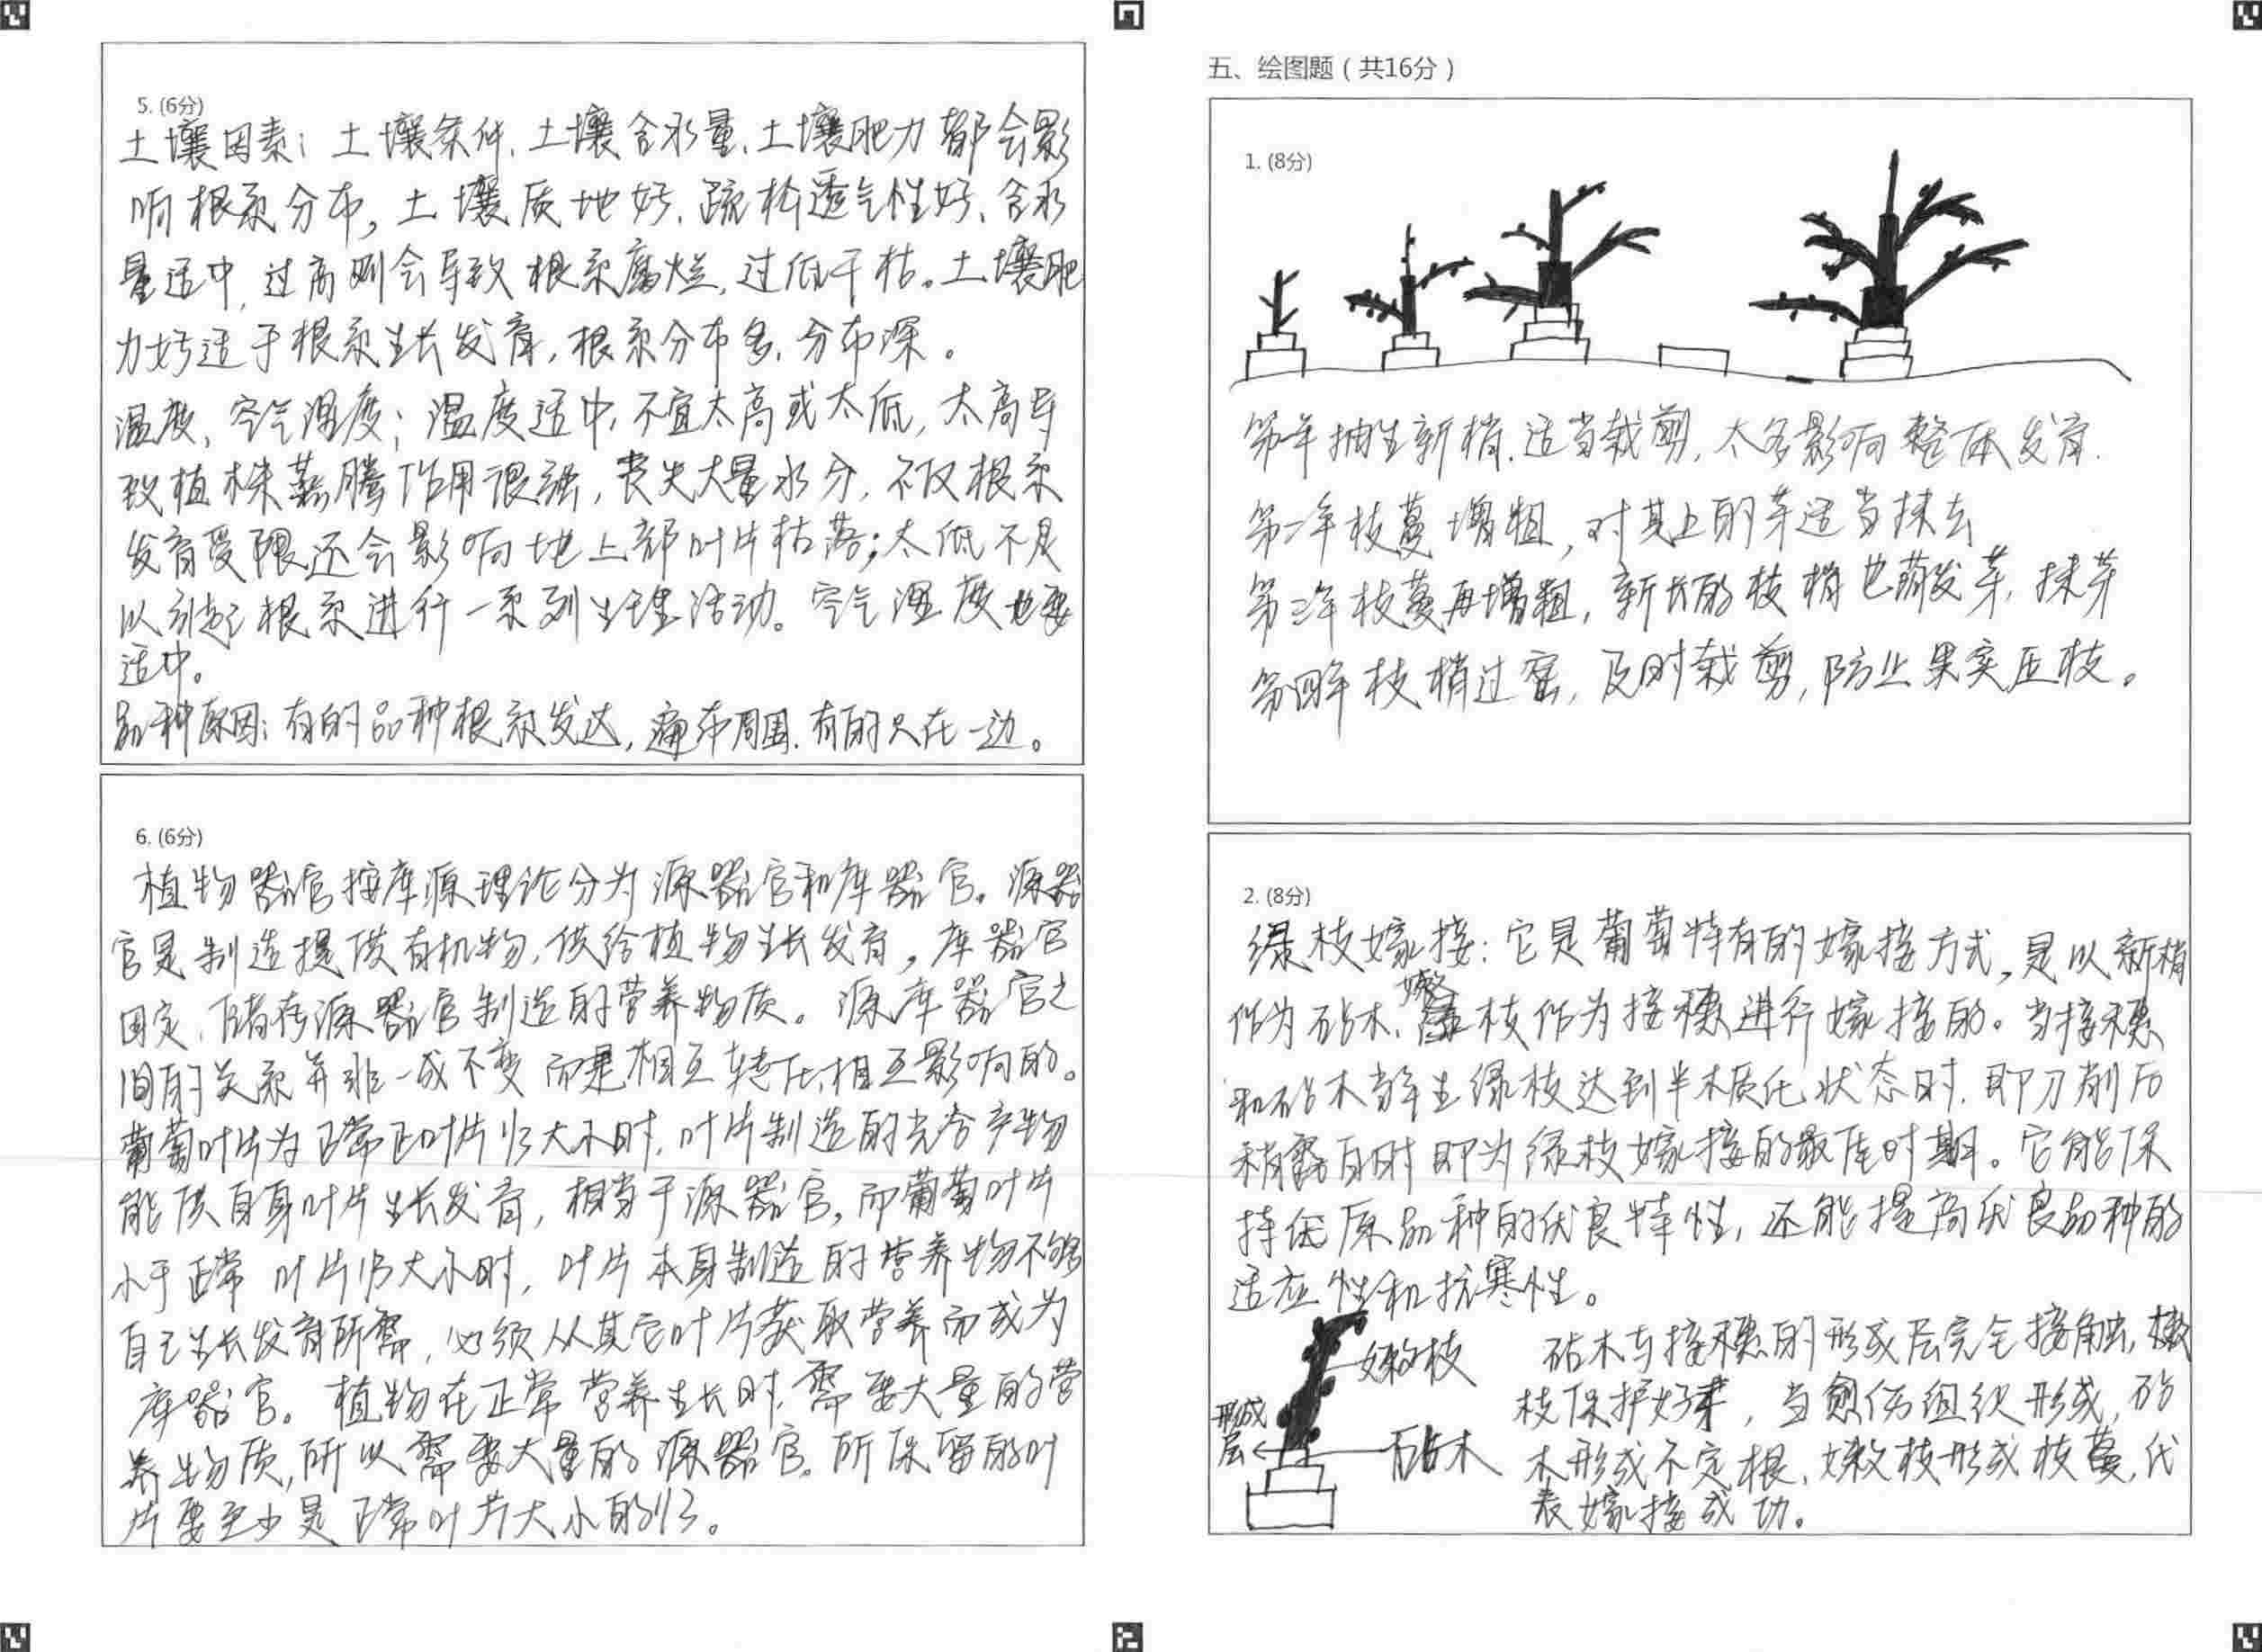 5. (6分)
土壤因素：土壤条件、土壤含水量、土壤肥力都会影
响根系分布，土壤质地好、疏松透气性好、含水
量适中，过高则会导致根系腐烂，过低干枯。土壤肥
力好适于根系生长发育，根系分布多、分布深。
温度、空气湿度：温度适中，不宜太高或太低，太高导
致植株蒸腾作用很强，丧失大量水分，不仅根系
发育受限还会影响地上部叶片枯落；太低不足
以引起根系进行一系列生理活动。空气湿度也要
适中。
品种原因：有的品种根系发达，遍布周围，有的只在一边。
6. (6分)
植物器官按库源理论分为源器官和库器官。源器
官是制造提供有机物，供给植物生长发育，库器官
固定、储存源器官制造的营养物质。源库器官之
间的关系并非一成不变而是相互转化、相互影响的。
葡萄叶片为正常正叶片1/3大小时，叶片制造的光合产物
能供自身叶片生长发育，相当于源器官，而葡萄叶片
小于正常叶片1/3大小时，叶片本身制造的营养物不够
自己生长发育所需，必须从其它叶片获取营养而成为
库器官。植物在正常营养生长时，需要大量的营
养物质，所以需要大量的源器官。所保留的叶
片要至少是正常叶片大小的1/3。
五、绘图题（共16分）
1. (8分)
第一年抽生新梢，适当栽剪，太多影响整体发育.
第二年枝蔓增粗，对其上的芽适当抹去
第三年枝蔓再增粗，新长的枝梢也萌发芽，抹芽
第四年枝梢过密，及时栽剪，防止果实压枝。
2. (8分)
绿枝嫁接：它是葡萄特有的嫁接方式，是以新梢
作为砧木、嫩枝作为接穗进行嫁接的。当接穗
和砧木当年生绿枝达到半木质化状态时，即刀削后
稍露白时即为绿枝嫁接的最佳时期。它能保
持原品种的优良特性，还能提高优良品种的
适应性和抗寒性。
嫩枝
形成
层
砧木
砧木与接穗的形成层完全接触，嫩
枝保护好芽，当愈伤组织形成，砧
木形成不定根，嫩枝形成枝蔓，代
表嫁接成功。